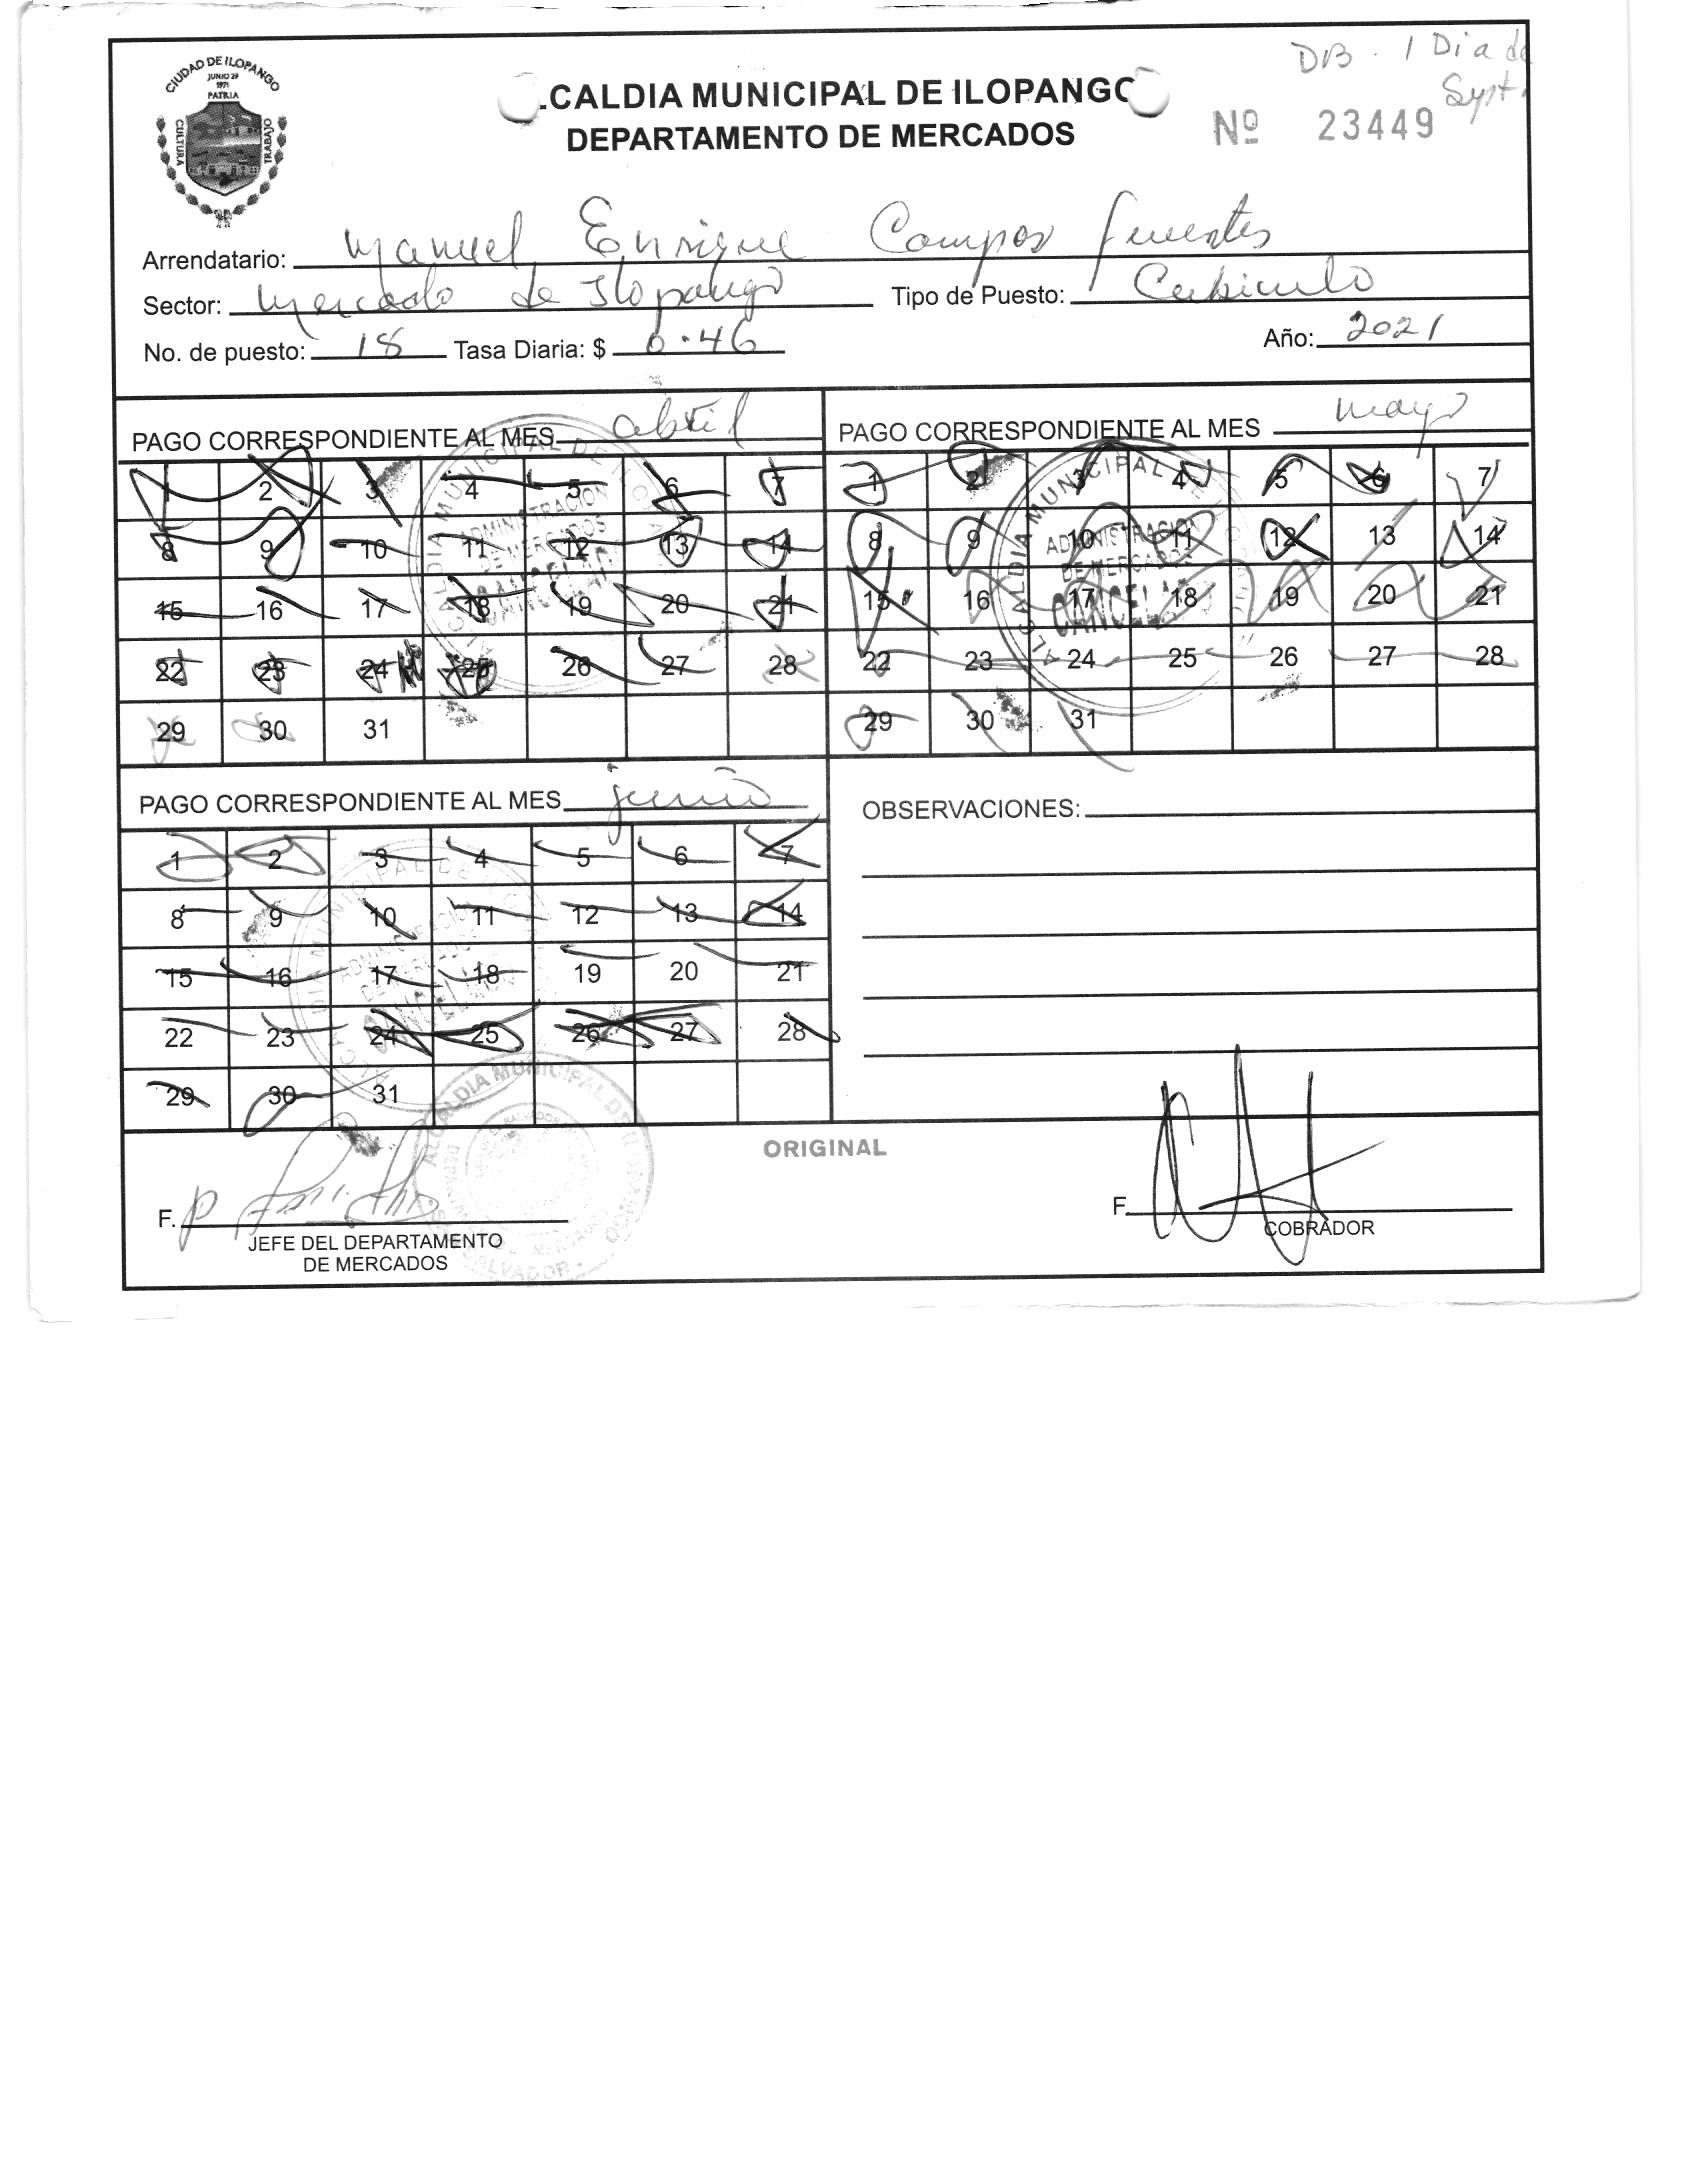 CIUDAD DE ILOPANGO
JUNIO 29
1971
PATRIA
CULTURA
TRABAJO
DB. 1 Dia de
Syst.
.CALDIA MUNICIPAL DE ILOPANGO
DEPARTAMENTO DE MERCADOS
Nº 23449
Arrendatario: Manuel Enrique Campos Fuentes
Sector: Mercado de Ilopango Tipo de Puesto: Cubiculo
No. de puesto: 18 Tasa Diaria: $ 0.46 Año: 2021
PAGO CORRESPONDIENTE AL MES abril
1 2 3 4 5 6 7
8 9 10 11 12 13 14
15 16 17 18 19 20 21
22 23 24 25 26 27 28
29 30 31
ALCALDIA MUNICIPAL DE
ADMINISTRACION
DE MERCADOS
CANCELADO
PAGO CORRESPONDIENTE AL MES mayo
1 2 3 4 5 6 7
8 9 10 11 12 13 14
15 16 17 18 19 20 21
22 23 24 25 26 27 28
29 30 31
ALCALDIA MUNICIPAL
ADMINISTRACION
DE MERCADOS
CANCELA
PAGO CORRESPONDIENTE AL MES junio
1 2 3 4 5 6 7
8 9 10 11 12 13 14
15 16 17 18 19 20 21
22 23 24 25 26 27 28
29 30 31
OBSERVACIONES:
ORIGINAL
ALCALDIA MUNICIPAL DE
F.
JEFE DEL DEPARTAMENTO
DE MERCADOS
F.
COBRADOR